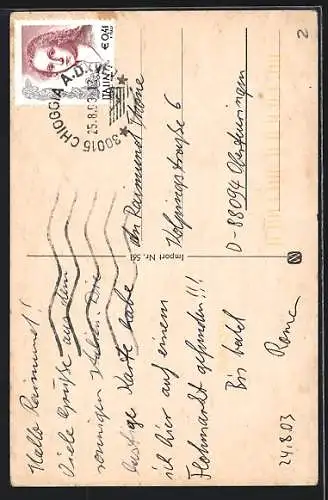 Hallo Raimund!
Viele Grüße aus dem
sonnigen Italien. Die
lustige Karte habe
ich hier auf einem
Flohmarkt gefunden!!!
Bis bald
24.8.03
Import Nr. 551
An Raimund
Kolpingstraße 6
D-88094 Oberteuringen
30015 CHIOGGIA
25.8.03
€ 0,41
2